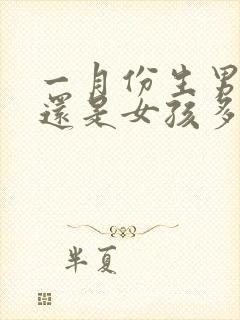 一月份生男
還是女孩多
半夏